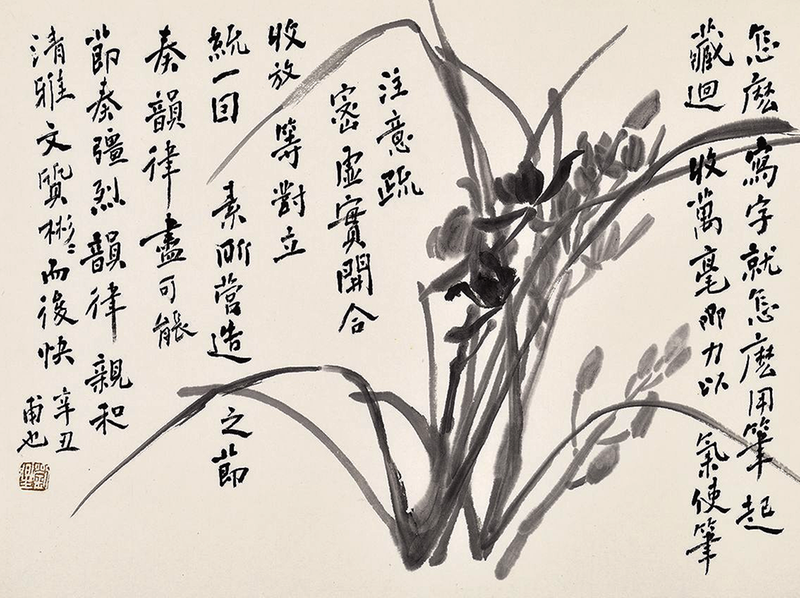 怎麽寫字就怎麽用筆起
藏迴收萬毫力以氣使筆
注意疏
密虛實開合
收放等對立
統一囙素所營造之節
奏韻律盡可能
節奏彊烈韻律親和
清雅文質彬〻而後快辛丑
甫也